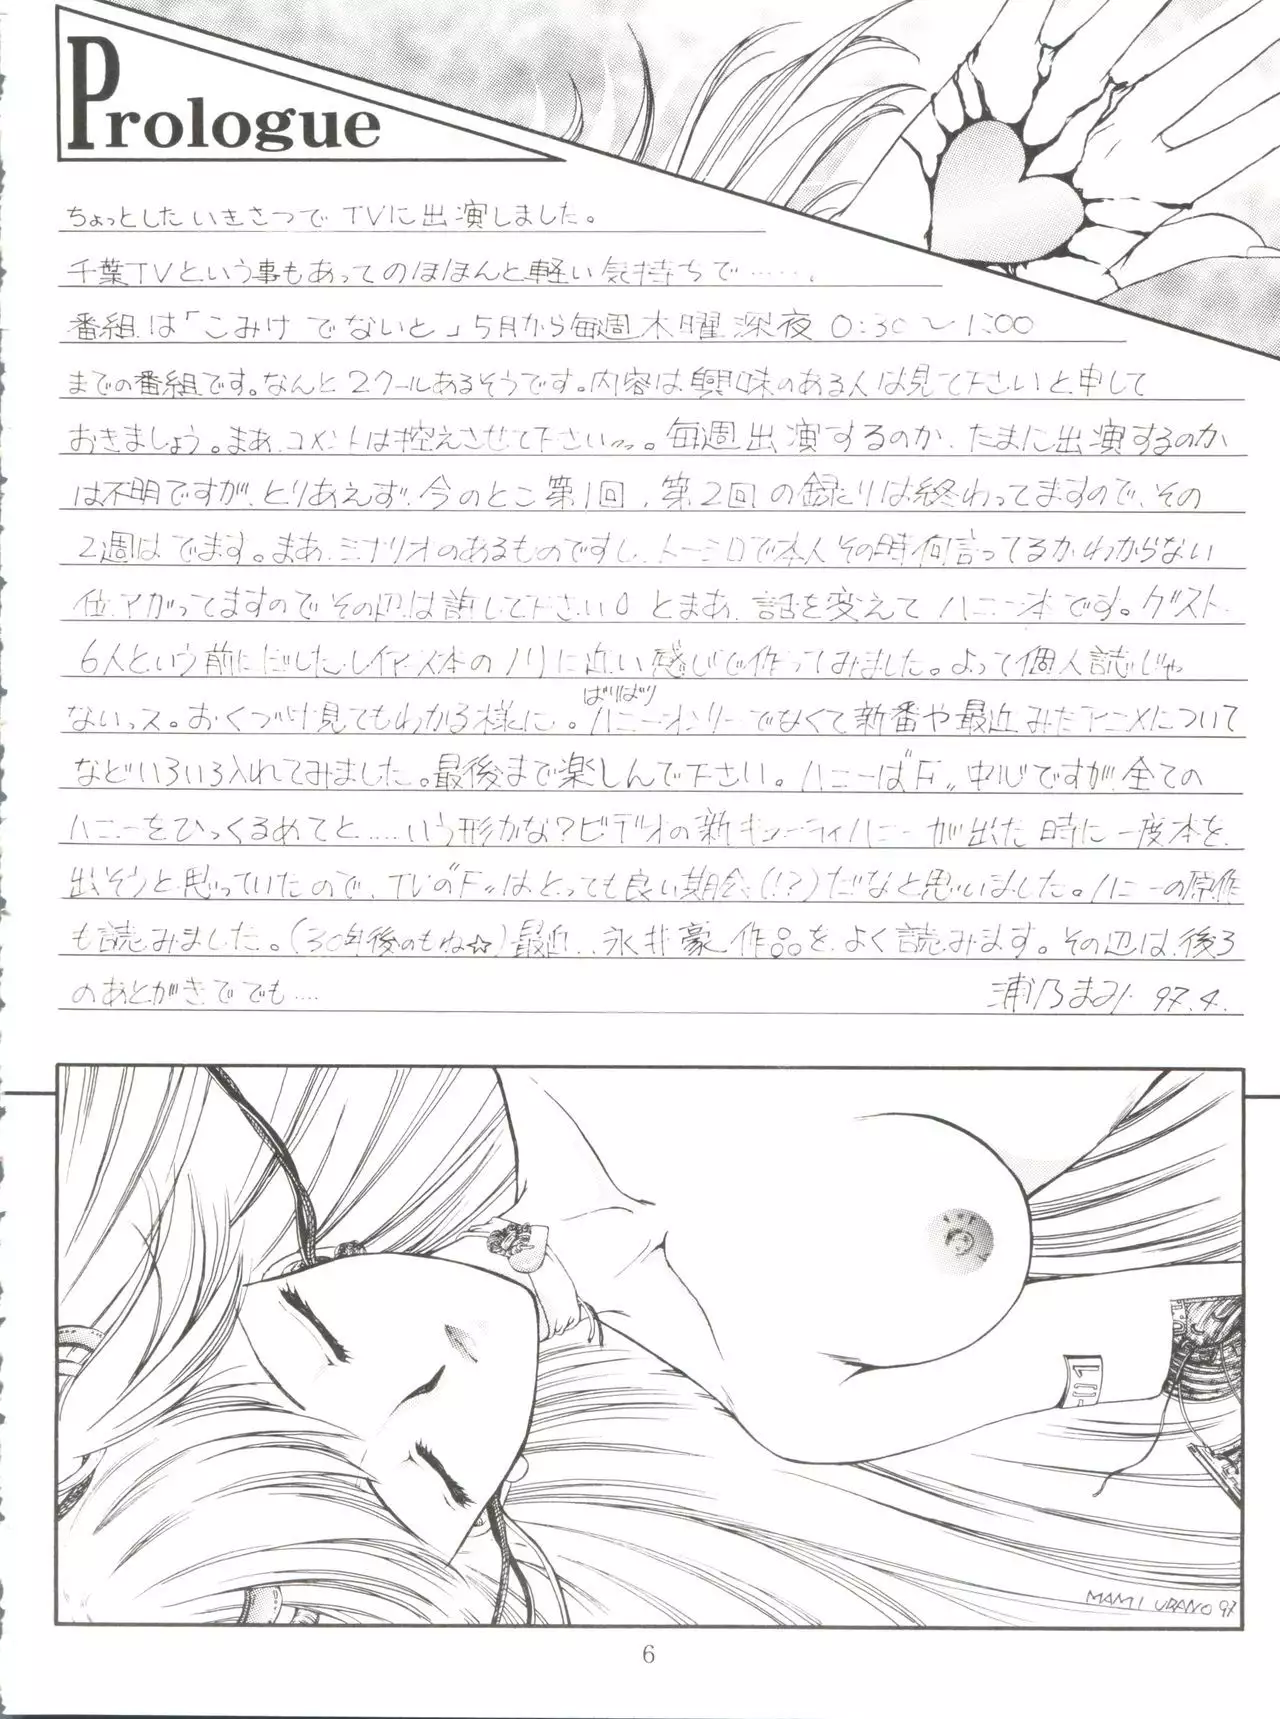 Prologue
ちょっとしたいきさつでTVに出演しました。
千葉TVという事もあってのほほんと軽い気持ちで……。
番組は「こみけでないと」5月から毎週木曜深夜0:30〜1:00
までの番組です。なんと2クールあるそうです。内容は興味のある人は見て下さいと申して
おきましょう。まあ、コメントは控えさせて下さいっっ。毎週出演するのか、たまに出演するのか
は不明ですが、とりあえず、今のとこ第1回、第2回の録とりは終わってますので、その
2週はでます。まあ、シナリオのあるものですし、トーシロで本人その時何言ってるかわからない
位、アガってますのでその辺は許して下さい0 とまあ、話を変えてハニー本です。ゲスト
6人という前にだしたレイアース本のノリに近い感じで作ってみました。よって個人誌じゃ
ないっス。おくづけ見てもわかる様に。ばりばりハニーオンリーでなくて新番や最近みたアニメについて
などいろいろ入れてみました。最後まで楽しんで下さい。ハニーは"F"中心ですが、全ての
ハニーをひっくるめてと……いう形かな?ビデオの新キューティハニーが出た時に一度本を
出そうと思っていたので、TVの"F"はとっても良い期会(!?)だなと思いました。ハニーの原作
も読みました。(30年後のもね☆)最近、永井豪作品をよく読みます。その辺は、後ろ
のあとがきででも……
浦乃まみ 97.4.
-01
MAMI URANO 97
6